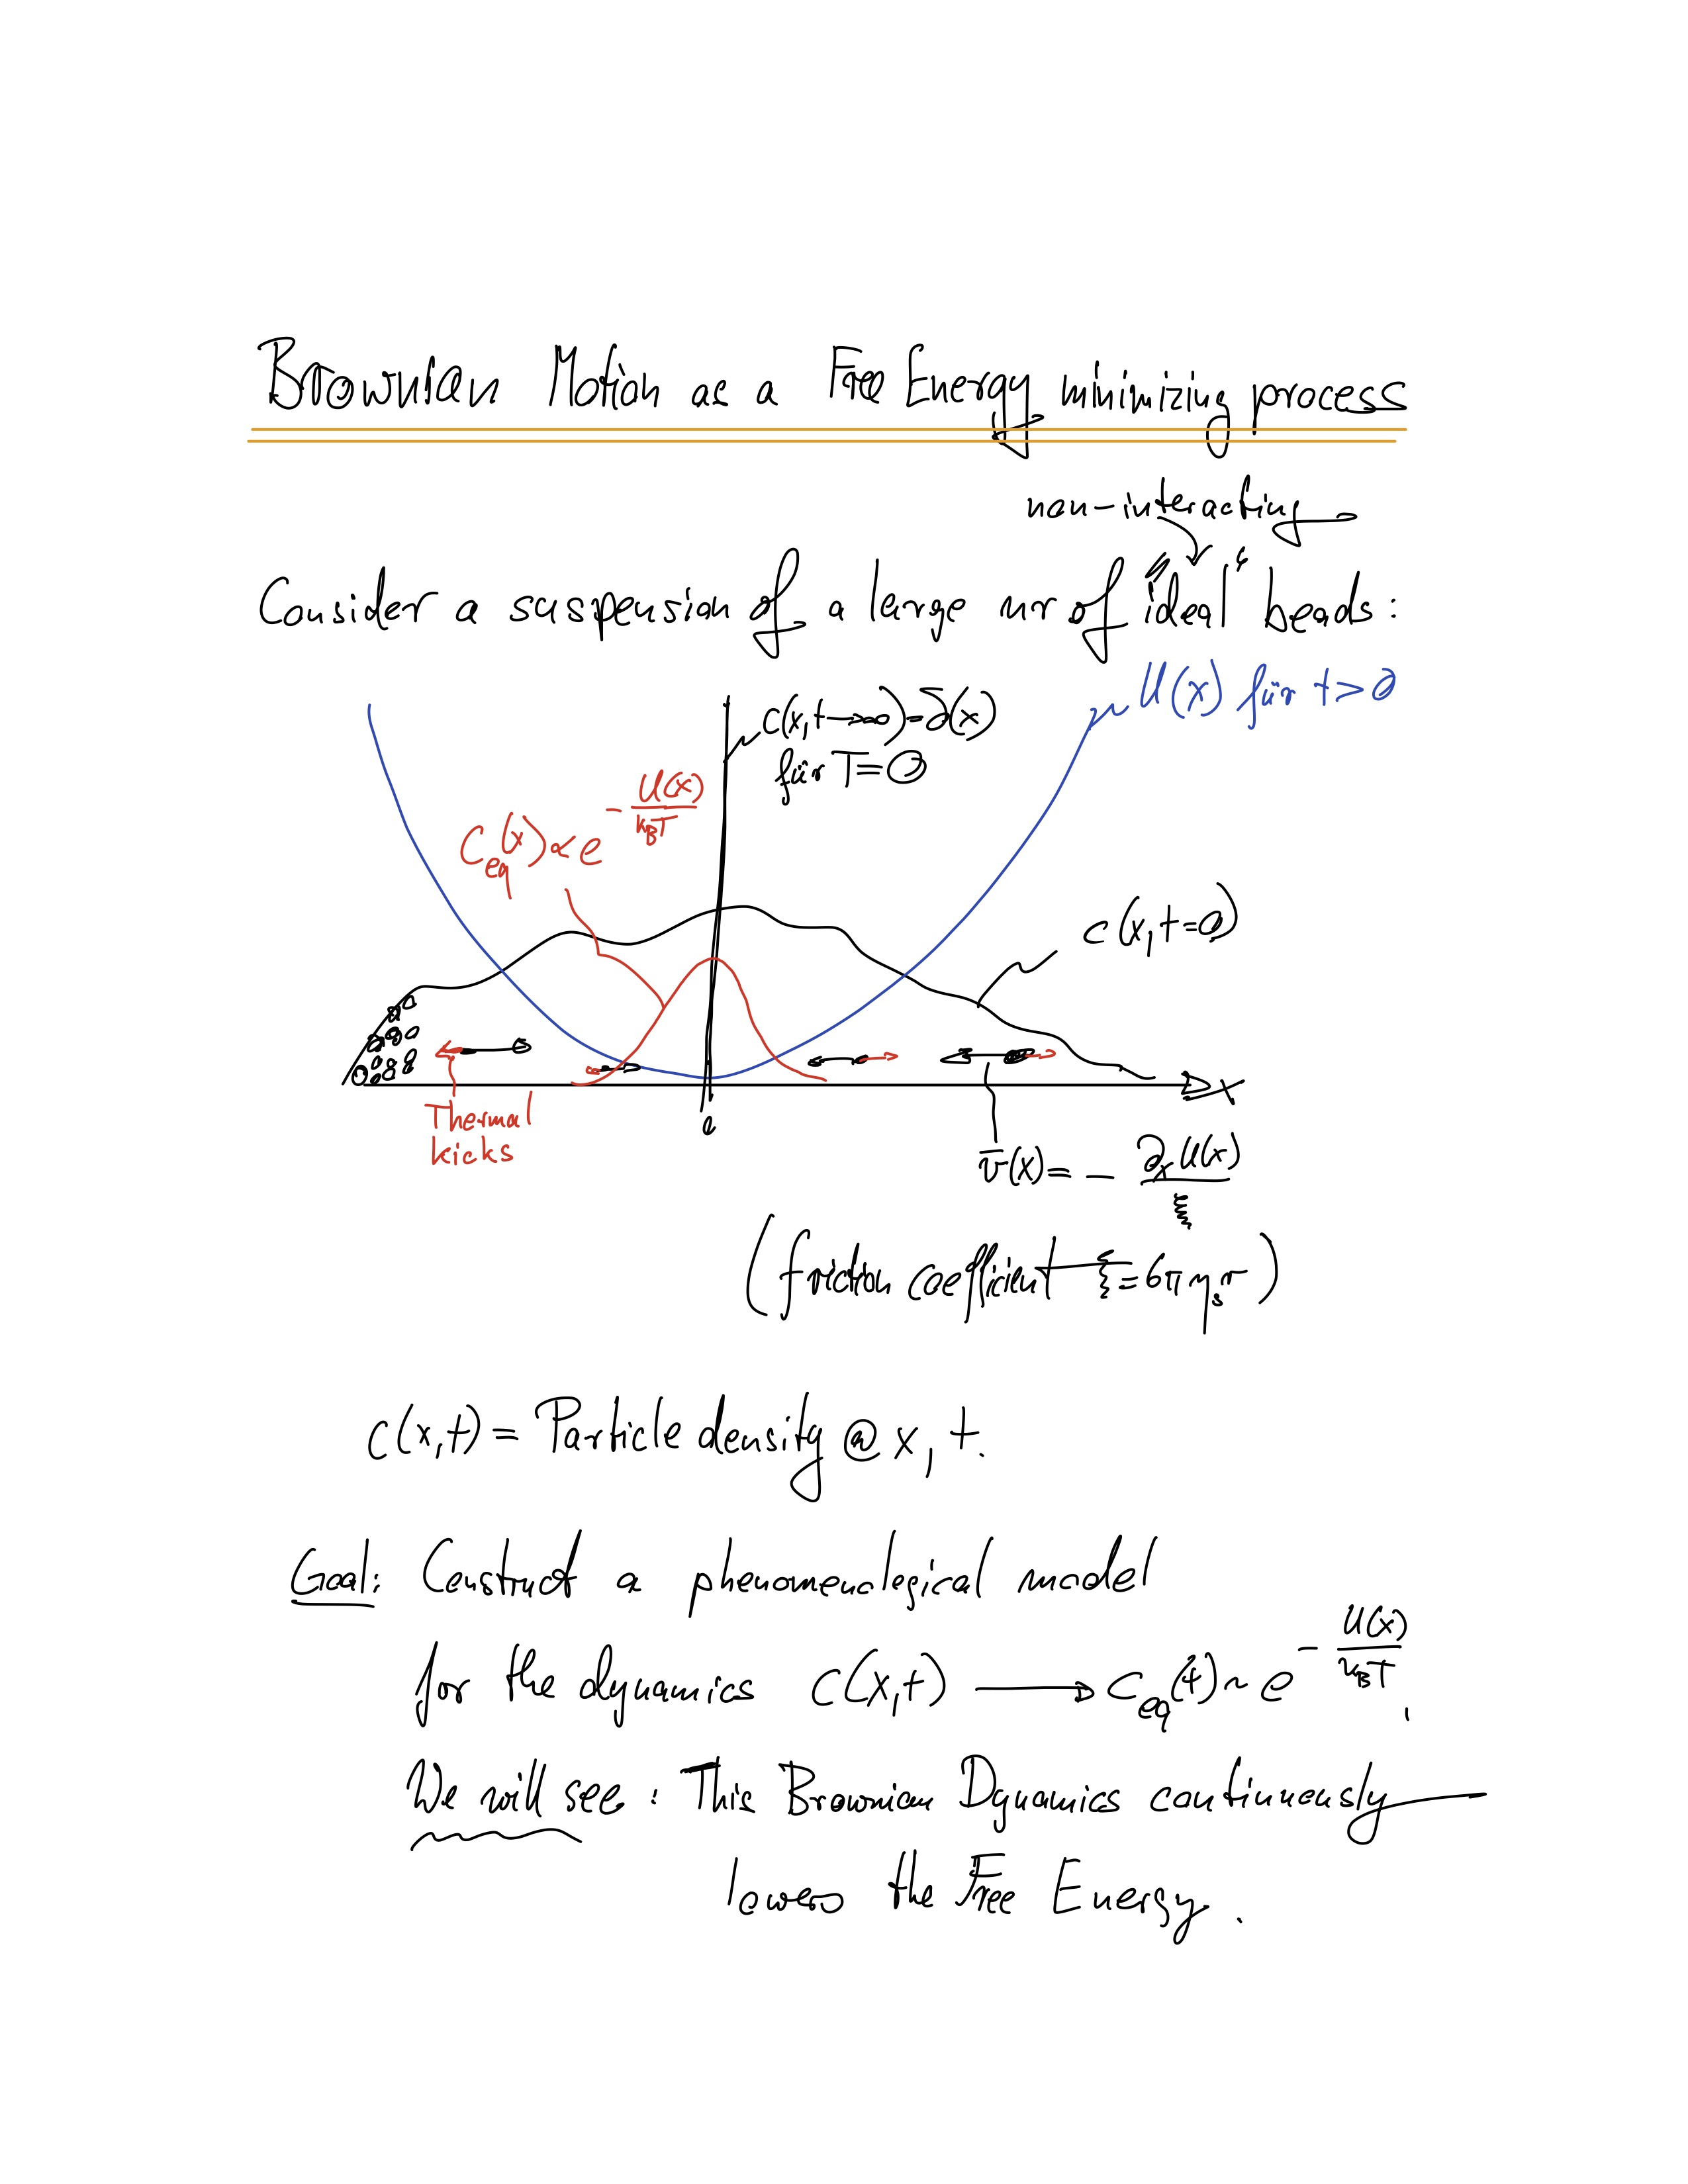 Brownian Motion as a Free Energy minimizing process
non-interacting
Consider a suspension of a large nr of "ideal" beads:
U(x) für t>0
c(x,t→∞)=δ(x)
für T=0
C_eq(x) ∝ e^{-U(x)/k_BT}
c(x,t=0)
x
0
Thermal
kicks
v̄(x) = - ∂_x U(x)/ξ
(friction coefficient ξ=6πη_s r)
c(x,t) = Particle density @ x, t.
Goal: Construct a phenomenological model
for the dynamics c(x,t) → c_eq(t) ~ e^{-U(x)/k_BT}.
We will see: This Brownian Dynamics continuously
lowers the Free Energy.